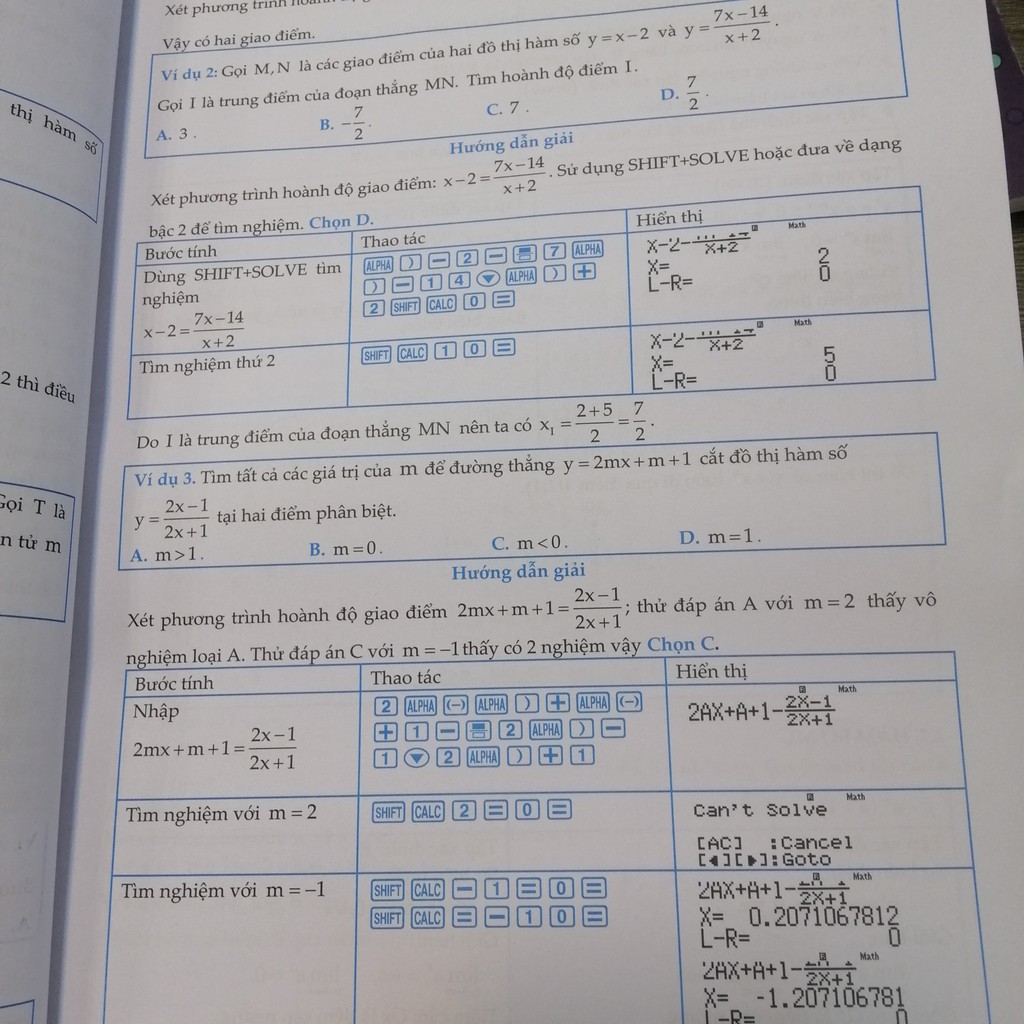 Xét phương trình hoành
Vậy có hai giao điểm.
Ví dụ 2: Gọi M, N là các giao điểm của hai đồ thị hàm số y = x − 2 và y = (7x − 14)/(x + 2).
Gọi I là trung điểm của đoạn thẳng MN. Tìm hoành độ điểm I.
A. 3. B. −7/2. C. 7. D. 7/2.
Hướng dẫn giải
Xét phương trình hoành độ giao điểm: x − 2 = (7x − 14)/(x + 2). Sử dụng SHIFT+SOLVE hoặc đưa về dạng
bậc 2 để tìm nghiệm. Chọn D.
Bước tính Thao tác Hiển thị
Dùng SHIFT+SOLVE tìm
nghiệm
x − 2 = (7x − 14)/(x + 2)
ALPHA ) − 2 − 7 ALPHA
) − 1 4 ▼ ALPHA ) +
2 SHIFT CALC 0 =
Math
X−2− X+2
X= 2
L−R= 0
Tìm nghiệm thứ 2
SHIFT CALC 1 0 =
Math
X−2− X+2
X= 5
L−R= 0
Do I là trung điểm của đoạn thẳng MN nên ta có x_I = (2 + 5)/2 = 7/2.
Ví dụ 3. Tìm tất cả các giá trị của m để đường thẳng y = 2mx + m + 1 cắt đồ thị hàm số
y = (2x − 1)/(2x + 1) tại hai điểm phân biệt.
A. m > 1. B. m = 0. C. m < 0. D. m = 1.
Hướng dẫn giải
Xét phương trình hoành độ giao điểm 2mx + m + 1 = (2x − 1)/(2x + 1); thử đáp án A với m = 2 thấy vô
nghiệm loại A. Thử đáp án C với m = −1 thấy có 2 nghiệm vậy Chọn C.
Bước tính Thao tác Hiển thị
Nhập
2mx + m + 1 = (2x − 1)/(2x + 1)
2 ALPHA (−) ALPHA ) + ALPHA (−)
+ 1 − 2 ALPHA ) −
1 ▼ 2 ALPHA ) + 1
Math
2AX+A+1−(2X−1)/(2X+1)
Tìm nghiệm với m = 2
SHIFT CALC 2 = 0 =
Math
Can't Solve
[AC] :Cancel
[◀][▶]:Goto
Tìm nghiệm với m = −1
SHIFT CALC − 1 = 0 =
SHIFT CALC = − 1 0 =
Math
2AX+A+1− 2X+1
X= 0.2071067812
L−R= 0
Math
2AX+A+1− 2X+1
X= -1.207106781
L−R= 0
thị hàm số
2 thì điều
Gọi T là
n tử m